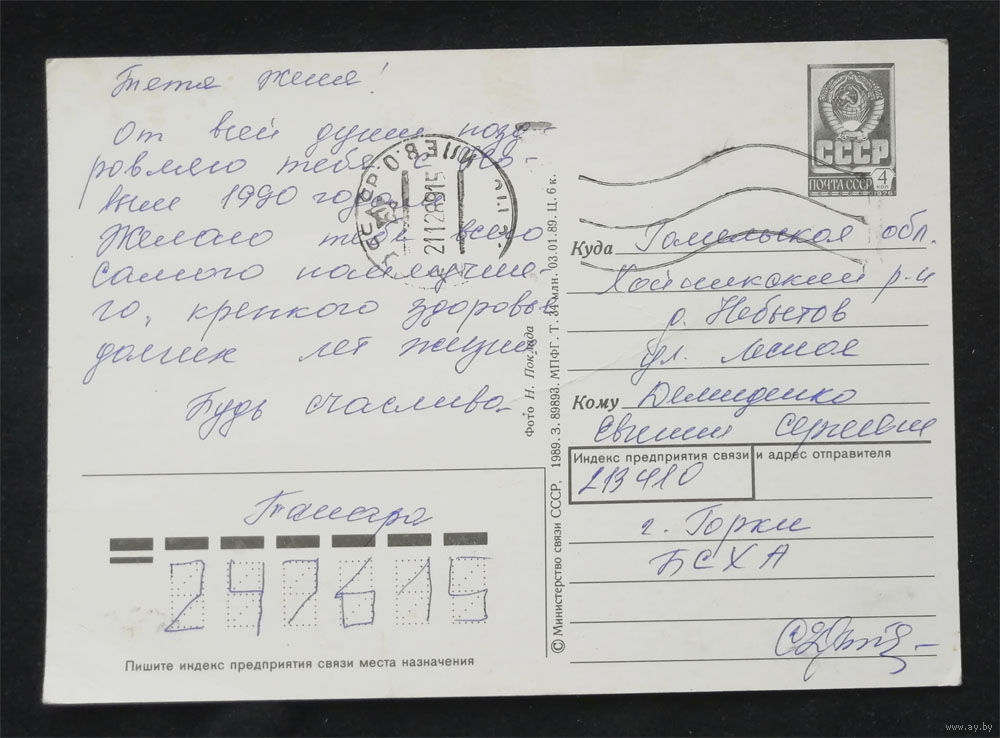 Тетя Женя!
От всей души позд
ровляю тебя с Но
вым 1990 годом
Желаю тебе всего
самого наилучше-
го, крепкого здоровья
долгих лет жизни
Будь счастлива.
Тамара
247615
Пишите индекс предприятия связи места назначения
21128915
Фото Н. Поклада
© Министерство связи СССР, 1989. З. 89893. МПФГ. Т. 34 млн. 03.01.89. Ц. 6 к.
СССР
ПОЧТА СССР 4 коп
1976
Куда Гомельская обл.
Хойникский р-н
д. Небытов
ул. Лесная
Кому Демиденко
Евгении Сергеевне
Индекс предприятия связи и адрес отправителя
213410
г. Горки
БСХА
www.ay.by